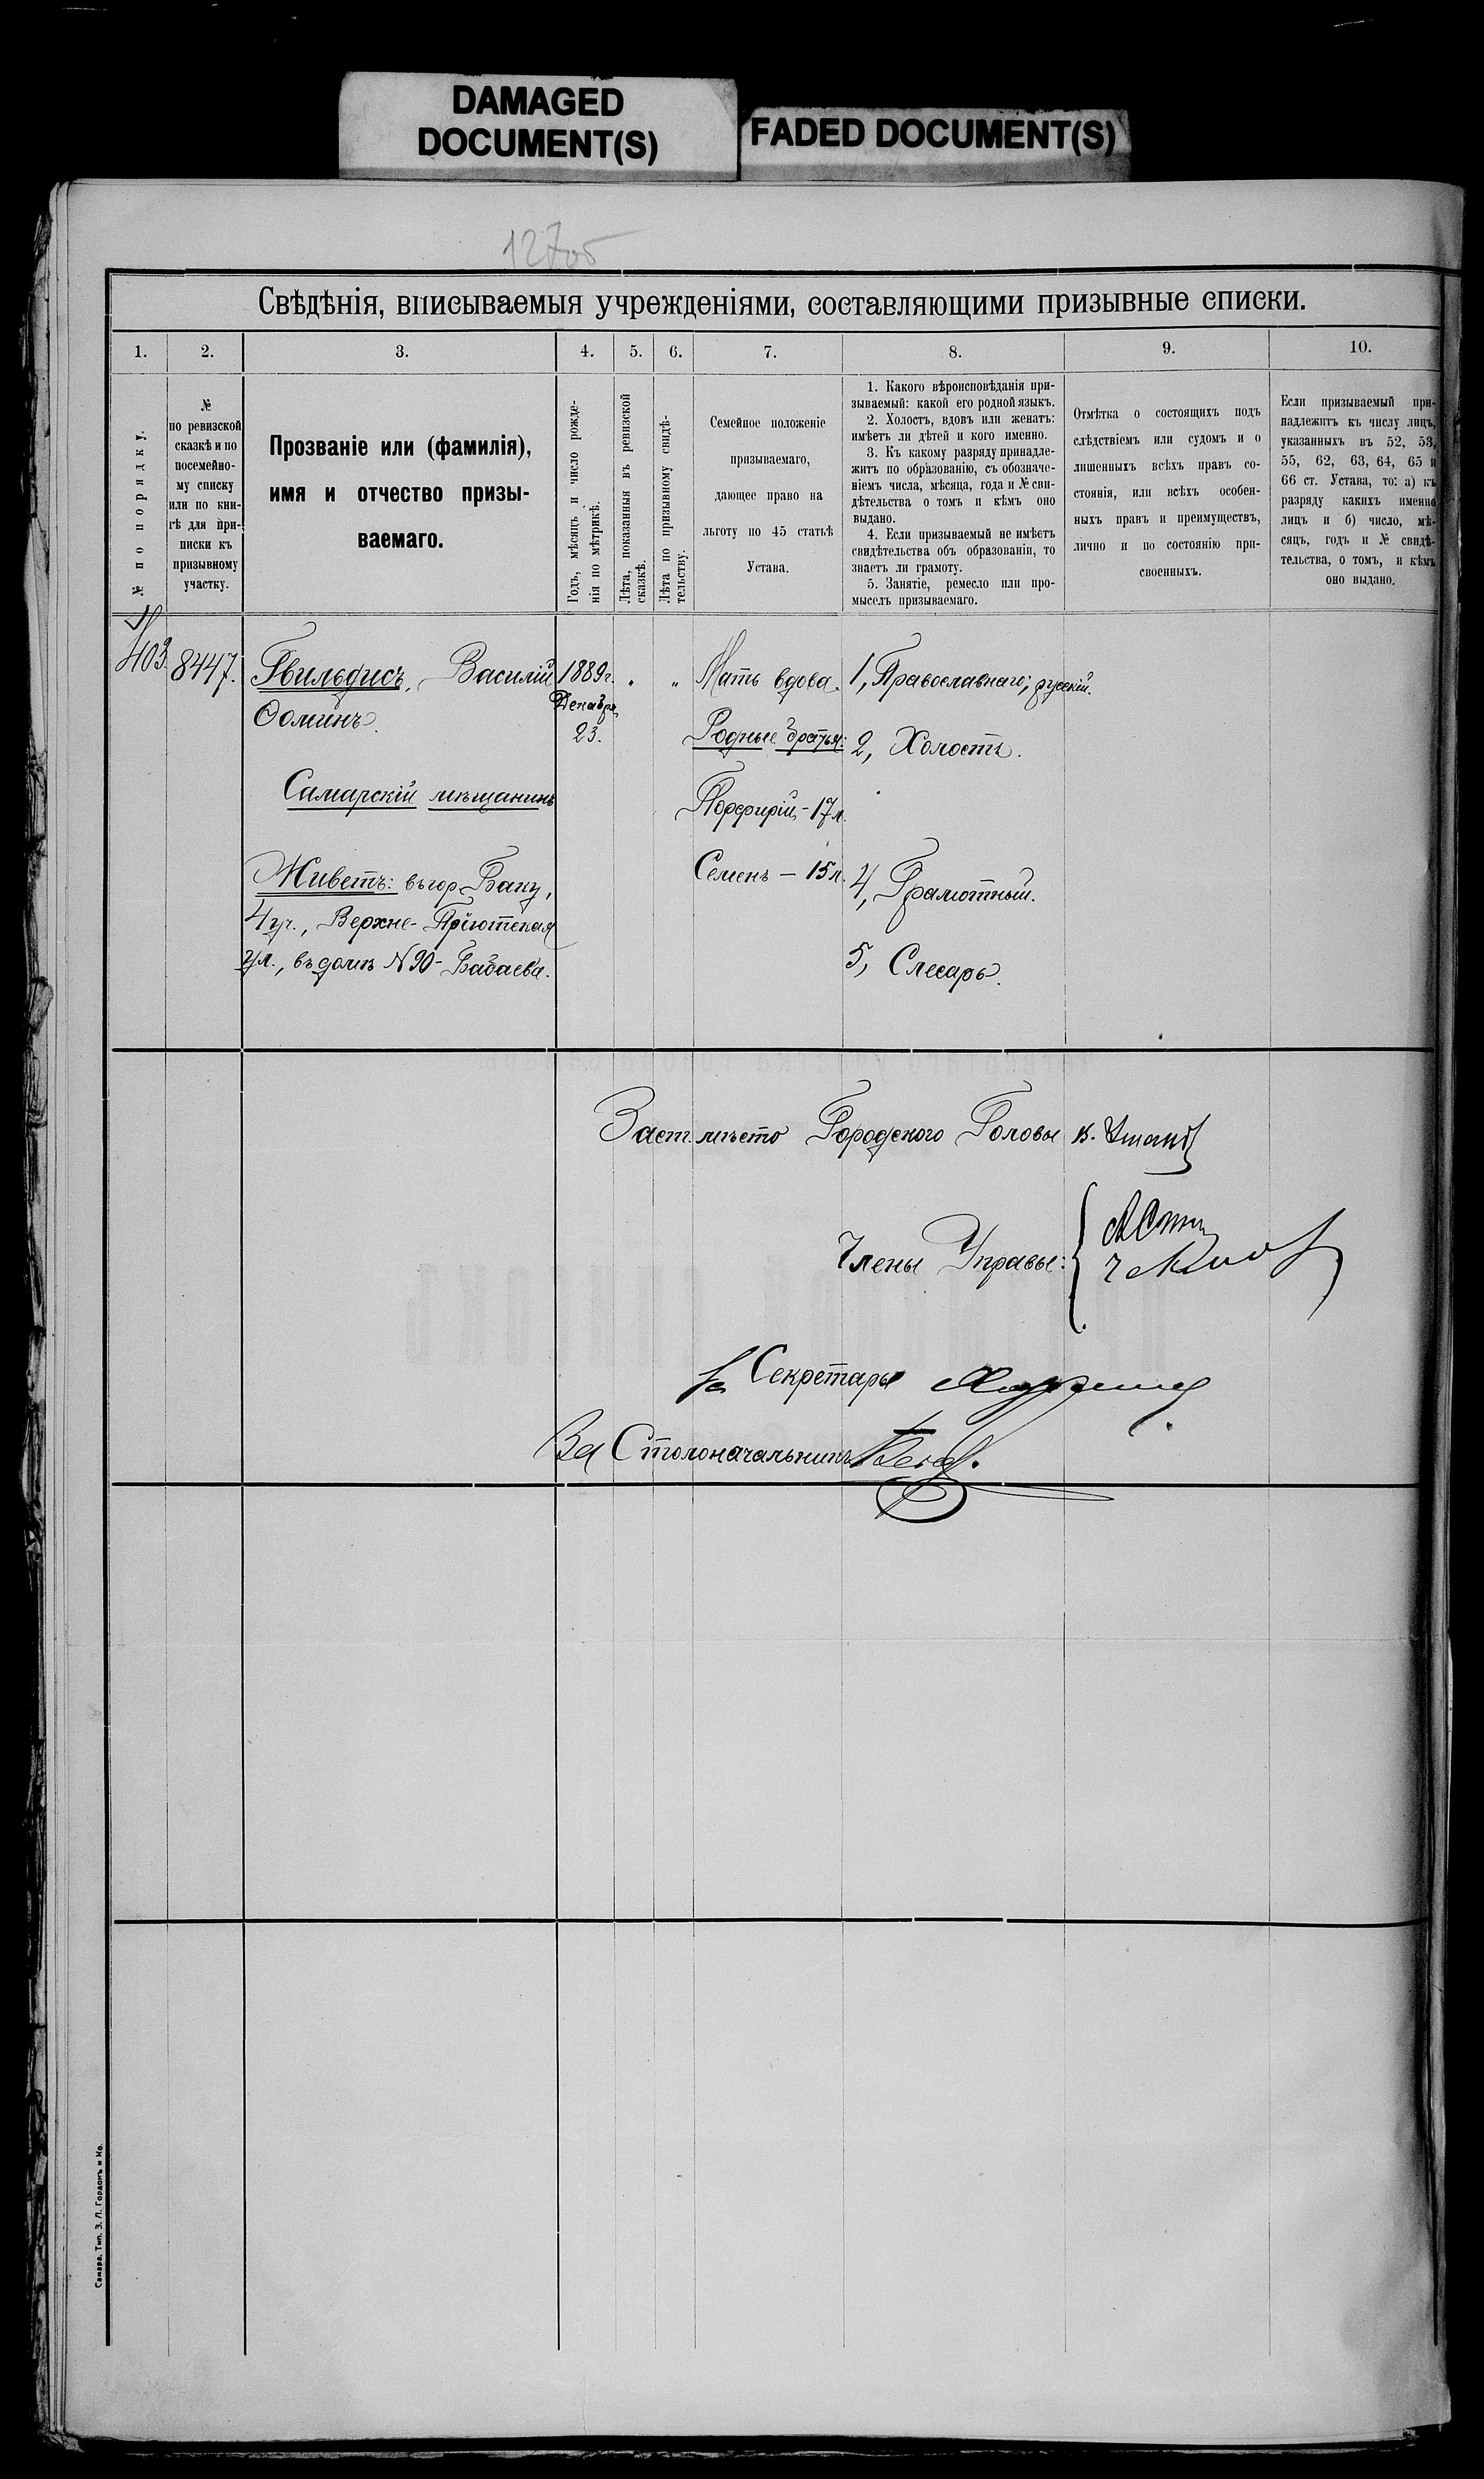 DAMAGED
DOCUMENT(S)
FADED DOCUMENT(S)
127об
Свѣдѣнія, вписываемыя учрежденіями, составляющими призывные списки.
1.
2.
3.
4.
5.
6.
7.
8.
9.
10.
№ по порядку.
№
по ревизской
сказкѣ и по
посемейно-
му списку
или по кни-
гѣ для при-
писки къ
призывному
участку.
Прозваніе или (фамилія),
имя и отчество призы-
ваемаго.
Годъ, мѣсяцъ и число рожде-
нія по мѣтрикѣ.
Лѣта, показанныя въ ревизской
сказкѣ.
Лѣта по призывному свидѣ-
тельству.
Семейное положеніе
призываемаго,
дающее право на
льготу по 45 статьѣ
Устава.
1. Какого вѣроисповѣданія при-
зываемый: какой его родной языкъ.
2. Холостъ, вдовъ или женатъ:
имѣетъ ли дѣтей и кого именно.
3. Къ какому разряду принадле-
житъ по образованію, съ обозначе-
ніемъ числа, мѣсяца, года и № сви-
дѣтельства о томъ и кѣмъ оно
выдано.
4. Если призываемый не имѣетъ
свидѣтельства объ образованіи, то
знаетъ ли грамоту.
5. Занятіе, ремесло или про-
мыселъ призываемаго.
Отмѣтка о состоящихъ подъ
слѣдствіемъ или судомъ и о
лишенныхъ всѣхъ правъ со-
стоянія, или всѣхъ особен-
ныхъ правъ и преимуществъ,
лично и по состоянію при-
своенныхъ.
Если призываемый при-
надлежитъ къ числу лицъ,
указанныхъ въ 52, 53,
55, 62, 63, 64, 65 и
66 ст. Устава, то: а) къ
разряду какихъ именно
лицъ и б) число, мѣ-
сяцъ, годъ и № свидѣ-
тельства, о томъ, и кѣмъ
оно выдано.
403.
8447.
Гвильдисъ, Василій
Ѳоминъ.
Самарскій мѣщанинъ
Живетъ: въ гор. Баку,
4 уч., Верхне-Пріютская
ул., въ домѣ N 90 - Бабаева.
1889 г.
Декабря
23.
"
"
Мать вдова.
Родные братья:
Порфирій - 17 л.
Семенъ - 15 л.
1, Православнаго; русскій.
2, Холостъ.
4, Грамотный.
5, Слесарь.
Заст. мѣсто Городского Головы
Члены Управы:
За Секретаря
За Столоначальника
Самара. Тип. З. Л. Гордонъ и Ко.